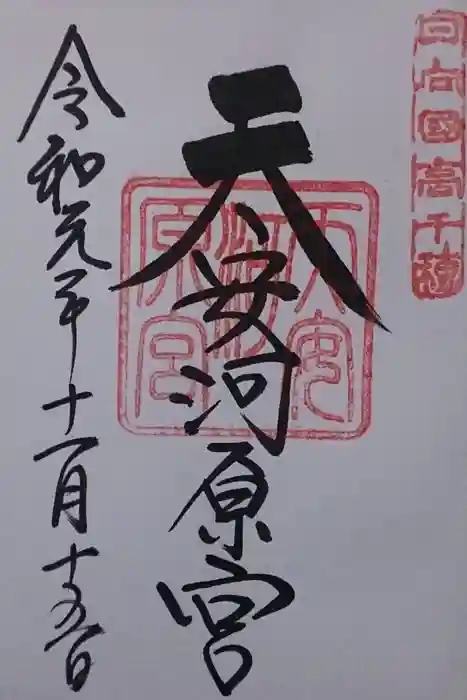 日向国高千穂
天安河原宮
天安河原宮
令和元年十一月十五日